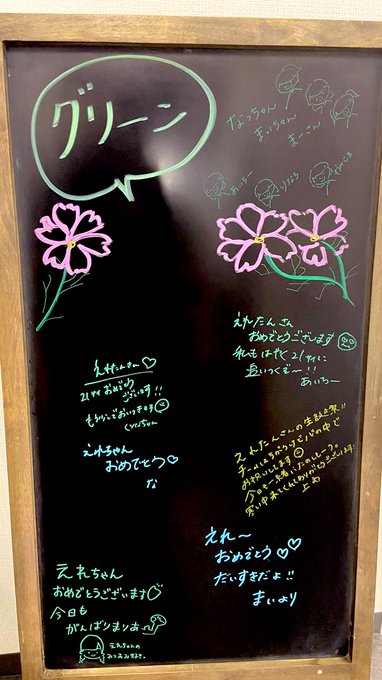 グリーン
なっちゃん
まいちゃん
まーさん
あいちー
えれたんさん
おめでとうございます
私もはやく21才に
追いつくぞ〜!!
あいちー
えれたんさん♡
21才おめでとう
ございます!!
えれちゃん
おめでとう♡
な
えれたんさんの生誕祭!!
チームはちがうけど心の中で
お祝いしてます
今日も一緒
寒い中来てくれてありがとうございます!
えれ〜
おめでとう♡♡
だいすきだよ!!
まいより
えれちゃん
おめでとうございます♡
今日も
がんばりまりあ
えれちゃんの